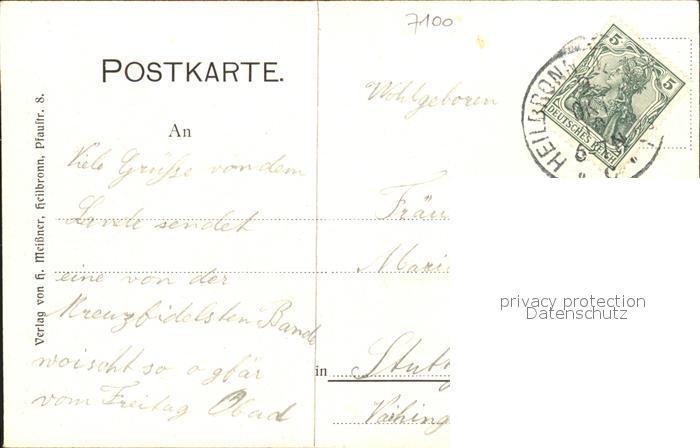 7100
POSTKARTE.
An
Viele Grüße von dem
Lande sendet
eine von der
Kreuzfidelsten Bande
woischt so ogfär
vom Freitag Obad
Verlag von H. Meißner, Heilbronn, Pfaustr. 8.
Wohlgeboren
Fräu
Mari
in Stutt
Vaihing
HEILBRONN
5 5
DEUTSCHES REICH
privacy protection
Datenschutz